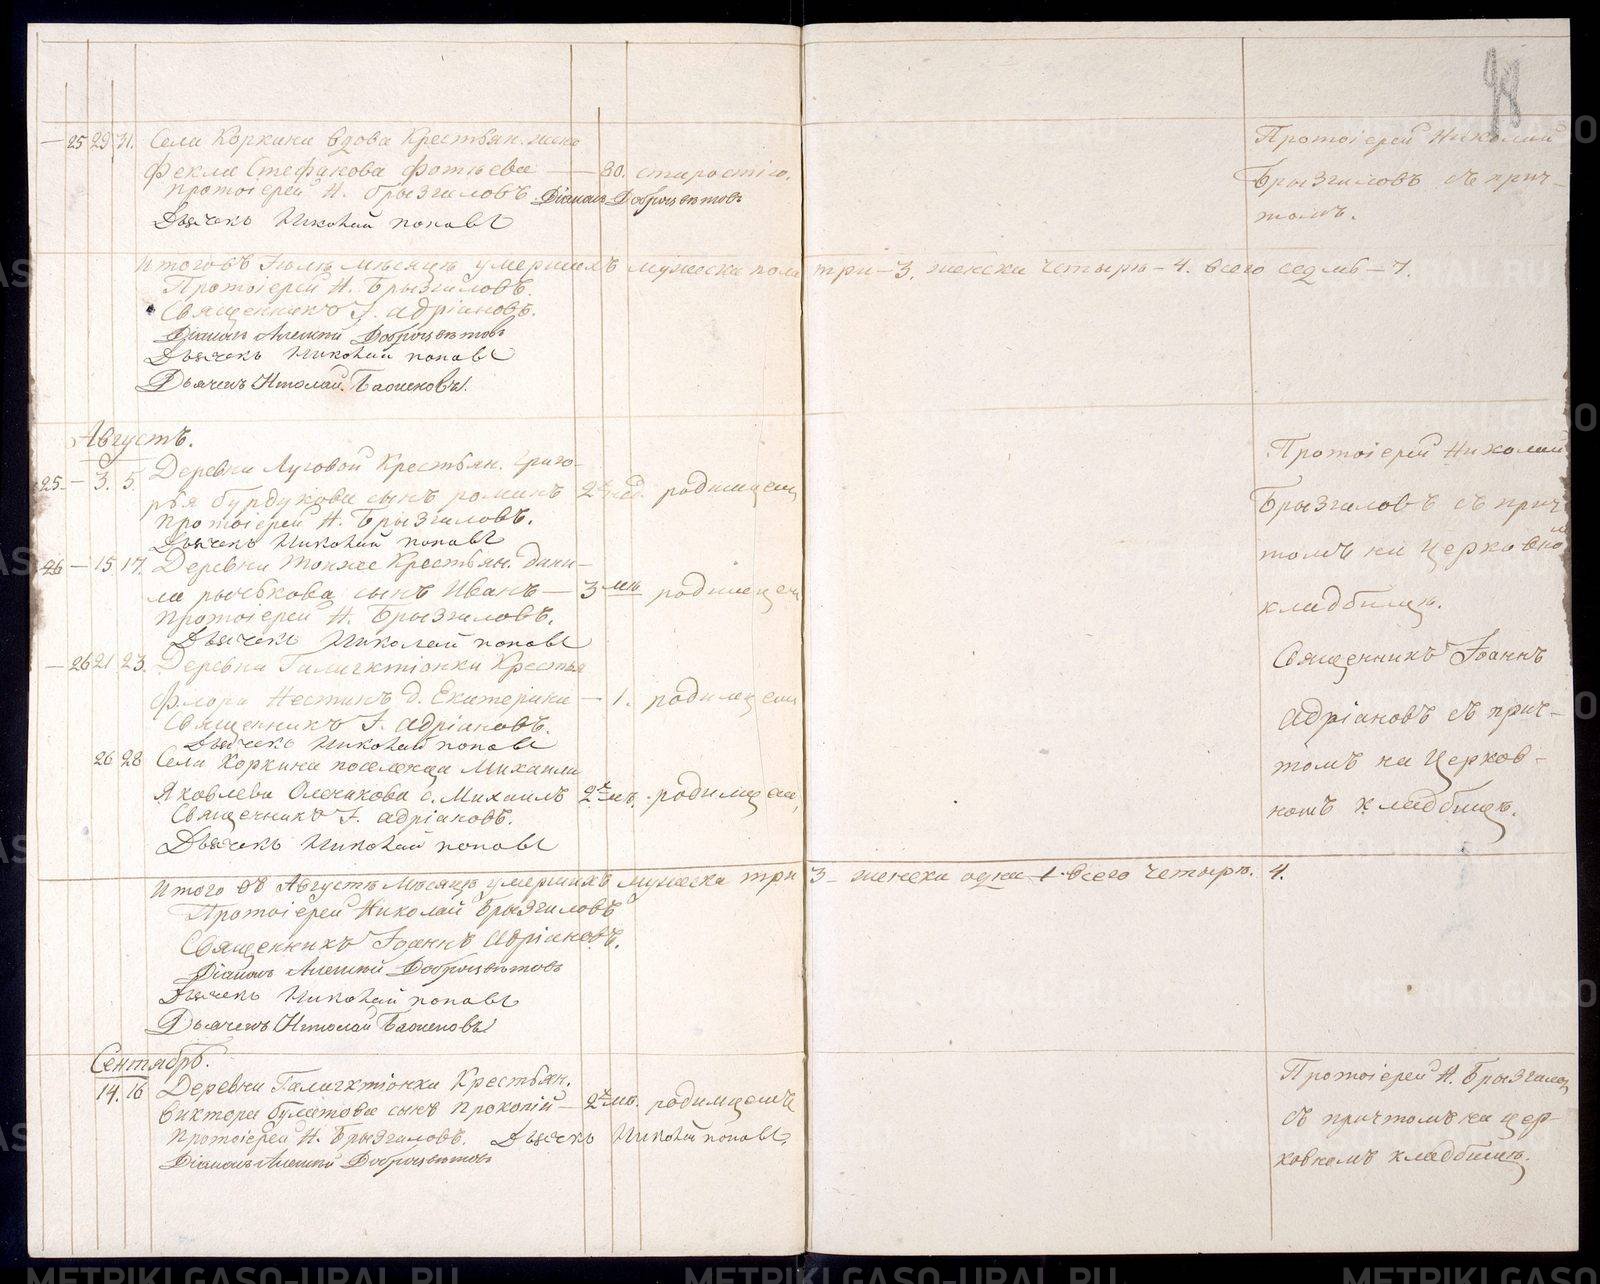 98
— 25 29 31. Села Коркина вдова Крестьян. жена
Фекла Стефанова Фотѣева — 80. старостію.
Протоіерей Н. Брызгаловъ. Діаконъ Доброцвѣтовъ
Дьячекъ Николай Поповъ
Протоіерей Николай
Брызгаловъ съ прич-
томъ.
Итого въ Іюлѣ мѣсяцѣ умершихъ мужеска пола три – 3. женска четыре – 4. всего седмь – 7.
Протоіерей Н. Брызгаловъ.
Священникъ І. Адріановъ.
Діаконъ Алексѣй Доброцвѣтовъ
Дьячекъ Николай Поповъ
Дьячекъ Николай
Августъ.
25. — 3. 5. Деревни Луговой Крестьян. Григо-
рья Бурдукова сынъ Романъ 2 нед. родимцемъ
Протоіерей Н. Брызгаловъ.
Дьячекъ Николай Поповъ
26 — 15 17. Деревни Тоя же Крестьян. Дани-
ла Рычкова сынъ Иванъ — 3 мѣ. родимцемъ
Протоіерей Н. Брызгаловъ.
Дьячекъ Николай Поповъ
Протоіерей Николай
Брызгаловъ съ прич
томъ на Церковно
кладбищѣ.
— 26 21 23. Деревни Крестья
Флора д. Екатерина — 1. родимцемъ
Священникъ І. Адріановъ.
Дьячекъ Николай Поповъ
26 28 Села Коркина поселенца Михаила
Яковлева с. Михаилъ 2 мѣ. родимцемъ
Священникъ І. Адріановъ.
Дьячекъ Николай Поповъ
Священникъ Іоаннъ
Адріановъ съ прич-
томъ на Церков-
номъ кладбищѣ.
Итого въ Августѣ мѣсяцѣ умершихъ мужеска три 3 – женска одна – 1 всего четыре. 4.
Протоіерей Николай Брызгаловъ
Священникъ Іоаннъ Адріановъ.
Діаконъ Алексѣй Доброцвѣтовъ
Дьячекъ Николай Поповъ
Дьячекъ Николай
Сентябрь.
14. 16 Деревни Крестьян.
Виктора Булатова сынъ Прокопій — 2 мѣ. родимцемъ
Протоіерей Н. Брызгаловъ. Дьячекъ Николай Поповъ
Діаконъ Алексѣй Доброцвѣтовъ
Протоіерей Н. Брызгалов
съ причтомъ на цер-
ковномъ кладбищѣ.
METRIKI.GASO-URAL.RU